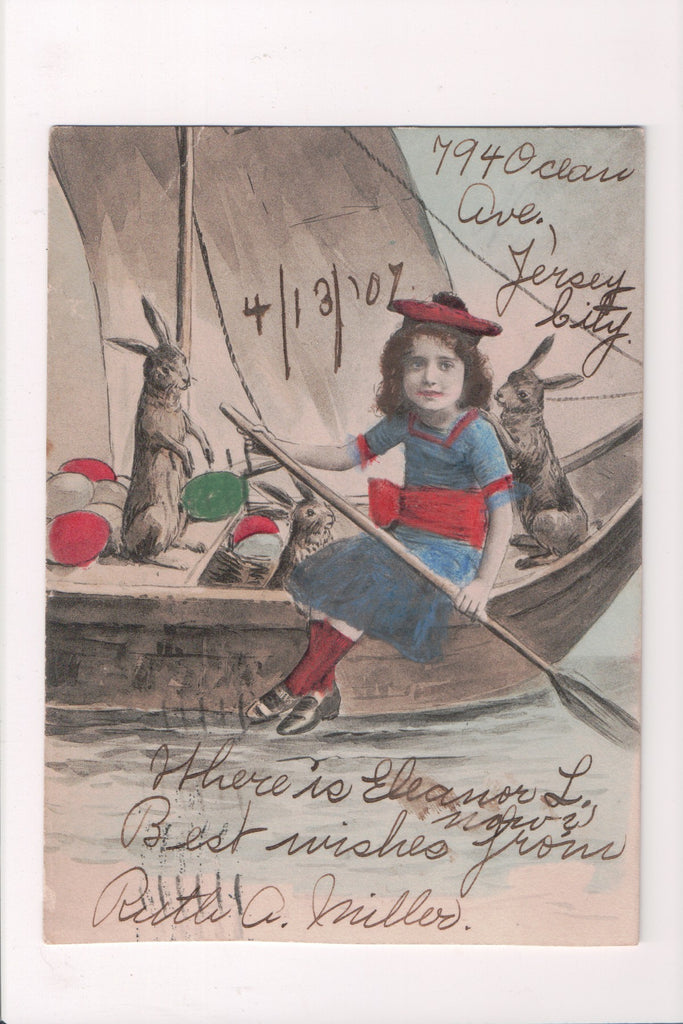 794 Ocean
Ave.,
Jersey
City.
4/13/'07.
Where is Eleanor L.
now?
Best wishes from
Ruth A. Miller.